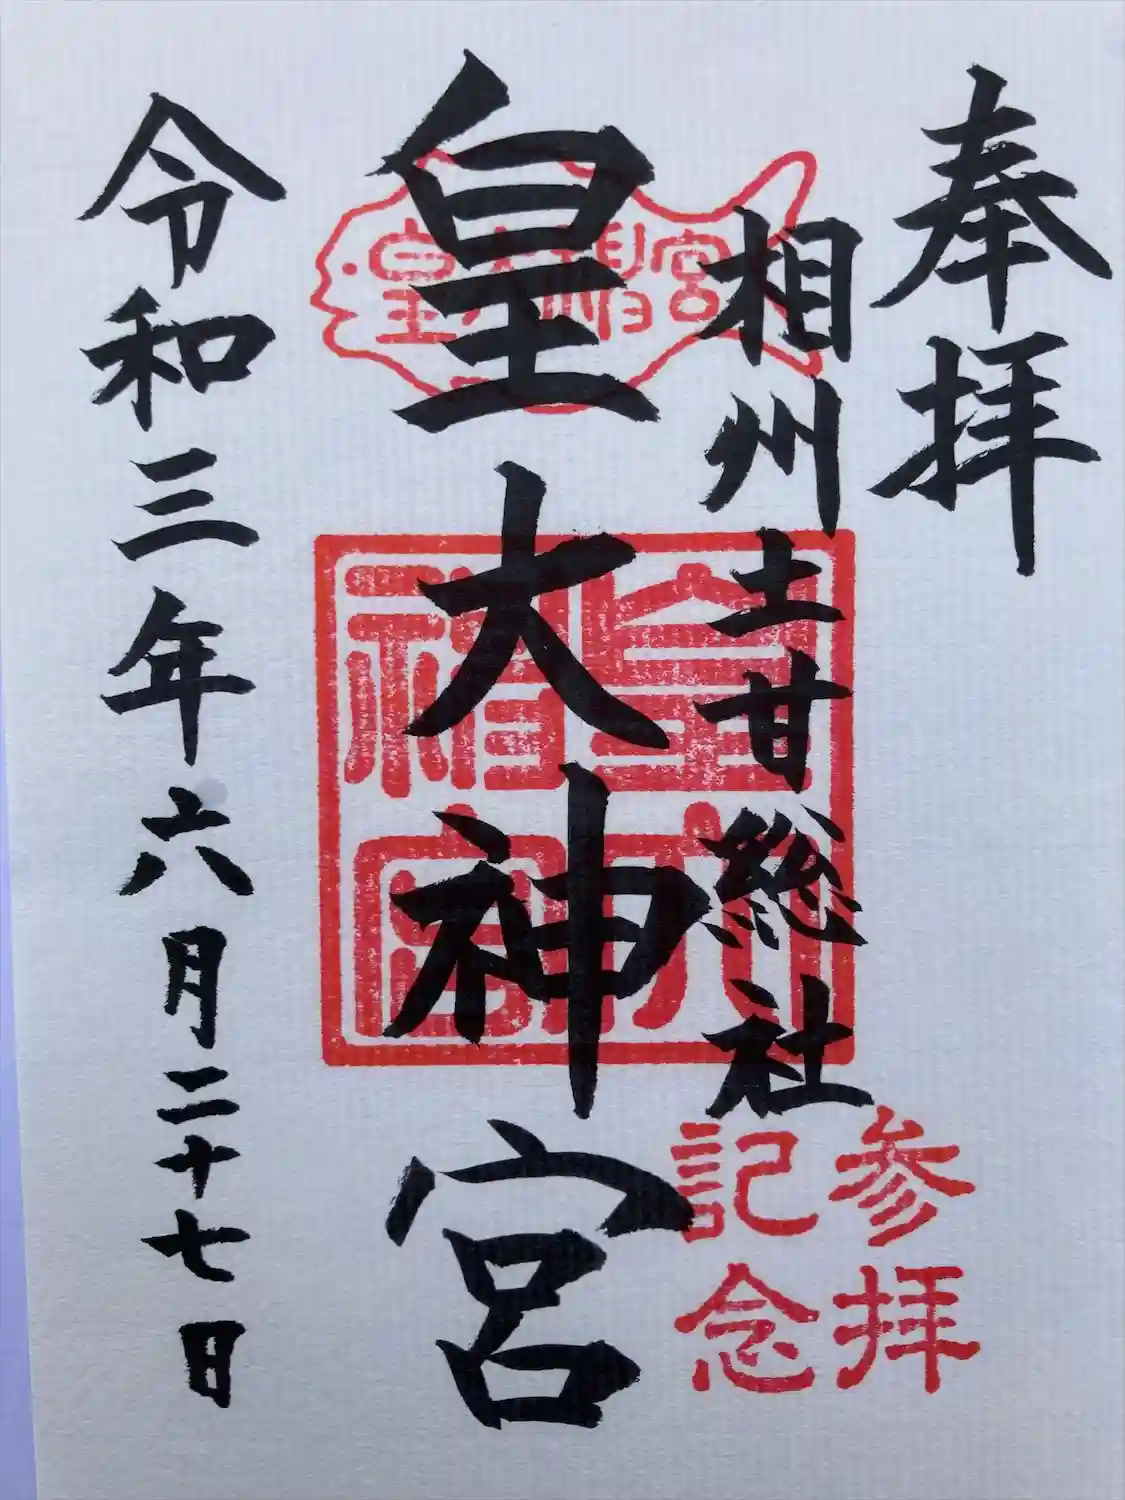 奉拝
相州土甘総社
皇大神宮
令和三年六月二十七日
皇大神宮
皇大神宮
参拝
記念